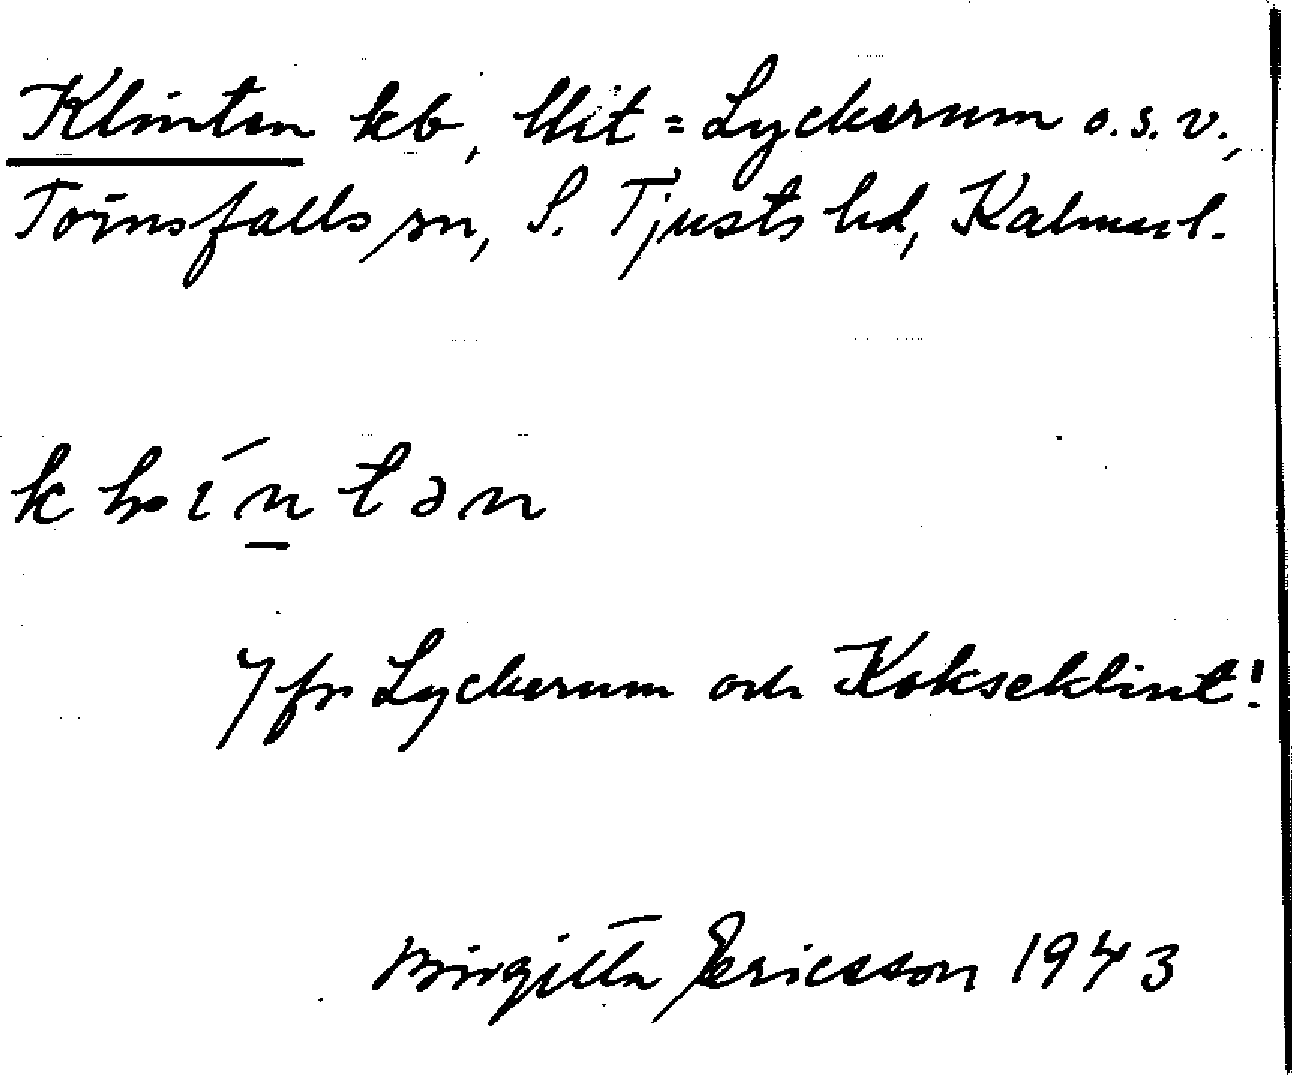 Klinten kb, blit = Lyckerum o.s.v.,
Törnsfalls sn, S. Tjusts hd, Kalmar l.
Jfr Lyckerum och Kokseklint!
Birgitta Ericsson 1943